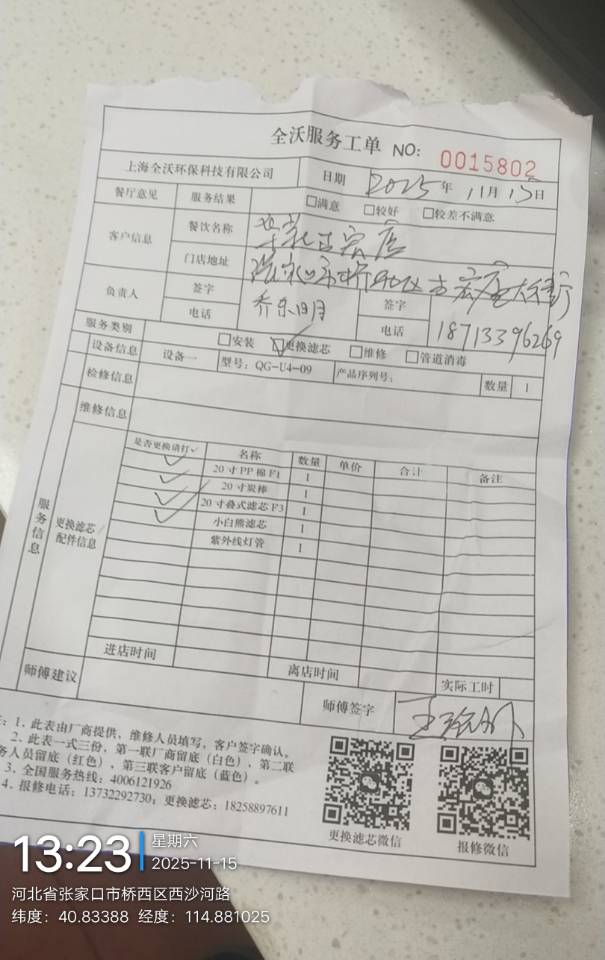 全沃服务工单 NO: 0015802
上海全沃环保科技有限公司 日期 2025年 11月 15日
餐厅意见 服务结果 □满意 □较好 □较差不满意
客户信息 餐饮名称
门店地址
负责人 签字 签字
电话 电话 18713396269
服务类别 □安装 ☑更换滤芯 □维修 □管道消毒
设备信息 设备一 型号: QG-U4-09 产品序列号: 数量 1
检修信息
维修信息
服务信息 更换滤芯配件信息
是否更换请打✓ 名称 数量 单价 合计 备注
✓ 20寸PP棉F1 1
✓ 20寸炭棒 1
✓ 20寸叠式滤芯F3 1
✓ 小白熊滤芯 1
紫外线灯管 1
进店时间 离店时间 实际工时
师傅建议 师傅签字
1. 此表由厂商提供、维修人员填写,客户签字确认。
2. 此表一式三份,第一联厂商留底(白色)、第二联
务人员留底(红色)、第三联客户留底(蓝色)。
3. 全国服务热线: 4006121926
4. 报修电话: 13732292730; 更换滤芯: 18258897611
更换滤芯微信 报修微信
13:23 星期六
2025-11-15
河北省张家口市桥西区西沙河路
纬度: 40.83388 经度: 114.881025